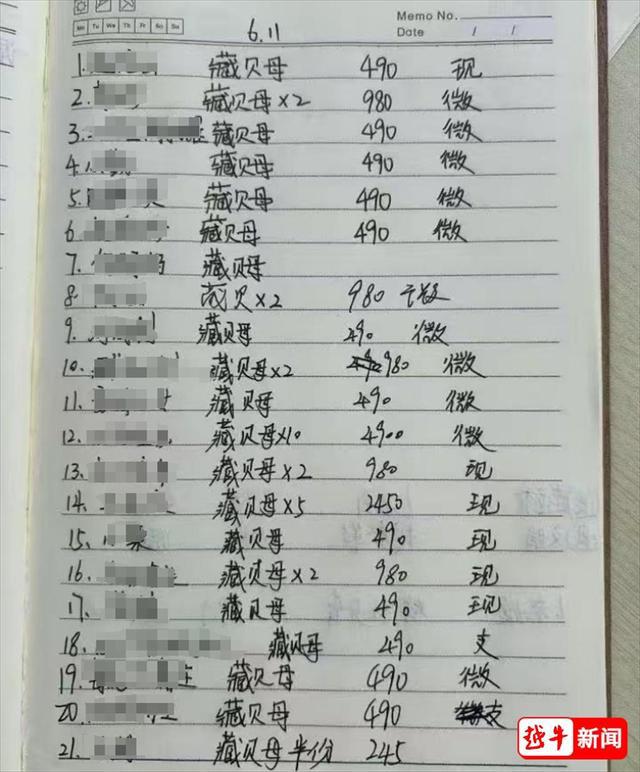 Memo No.
Mo Tu We Th Fr Sa Su
Date / /
6.11
1. 藏贝母 490 现
2. 藏贝母×2 980 微
3. 藏贝母 490 微
4. 藏贝母 490 微
5. 藏贝母 490 微
6. 藏贝母 490 微
7. 藏贝母
8. 藏贝×2 980
9. 藏贝母 490 微
10. 藏贝母×2 980 微
11. 藏贝母 490 微
12. 藏贝母×10 4900 微
13. 藏贝母×2 980 现
14. 藏贝母×5 2450 现
15. 藏贝母 490 现
16. 藏贝母×2 980 现
17. 藏贝母 490 现
18. 藏贝母 490 支
19. 藏贝母 490 微
20. 藏贝母 490 支
21. 藏贝母半份 245
越牛新闻